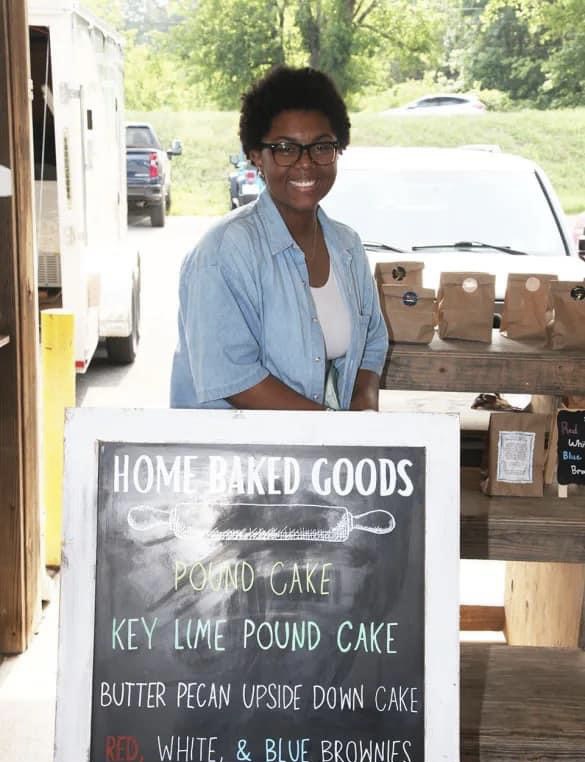 HOME BAKED GOODS
POUND CAKE
KEY LIME POUND CAKE
BUTTER PECAN UPSIDE DOWN CAKE
RED, WHITE, & BLUE BROWNIES
Red
Whi
Blue
Bro